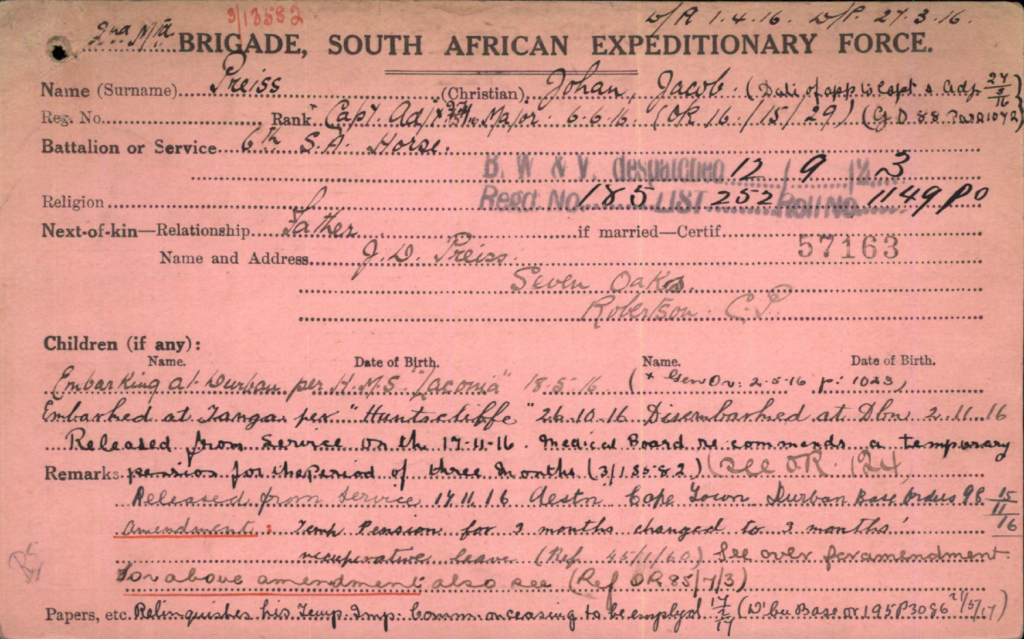 3/13582 D/R 1.4.16. D/P. 27.3.16.
2nd Mtd BRIGADE, SOUTH AFRICAN EXPEDITIONARY FORCE.
Name (Surname) Preiss (Christian) Johan Jacob (Date of app to Capt & Adj 27/3/16)
Reg. No. Rank Capt Adj Major 6.6.16 (OR 16/15/29) (G.D 88 Para 1072)
Battalion or Service 6th S.A. Horse.
B. W & V. despatched 12/9/ 3
Religion Regd. No. 185 LIST 252 Roll No. 1149 PO
Next-of-kin—Relationship Father if married—Certif. 57163
Name and Address J. D. Preiss.
Seven Oaks
Robertson. C.P
Children (if any):
Name. Date of Birth. Name. Date of Birth.
Embarking at Durban per H.M.S. "Laconia" 18.5.16 (x Gen Or: 2-5-16 p: 1023)
Embarked at Tanga per "Huntscliffe" 26.10.16 Disembarked at Dbn 2.11.16
Released from Service on the 17-11-16. Medical Board recommends a temporary
Remarks pension for the Period of three months (3/13582) (see O.R. 124
Released from service 17.11.16 Cape Town Durban Base Orders 98 15/11/16
Amendment: Temp Pension for 3 months changed to 3 months'
recuperative leave (Ref 45/1/60) See over for amendment
For above amendment also see (Ref OR 85/7/3)
Papers, etc. Relinquishes his Temp: Imp: Comm: on ceasing to be emplyd (D'bn Base Or 195 P3086 21/5/17)